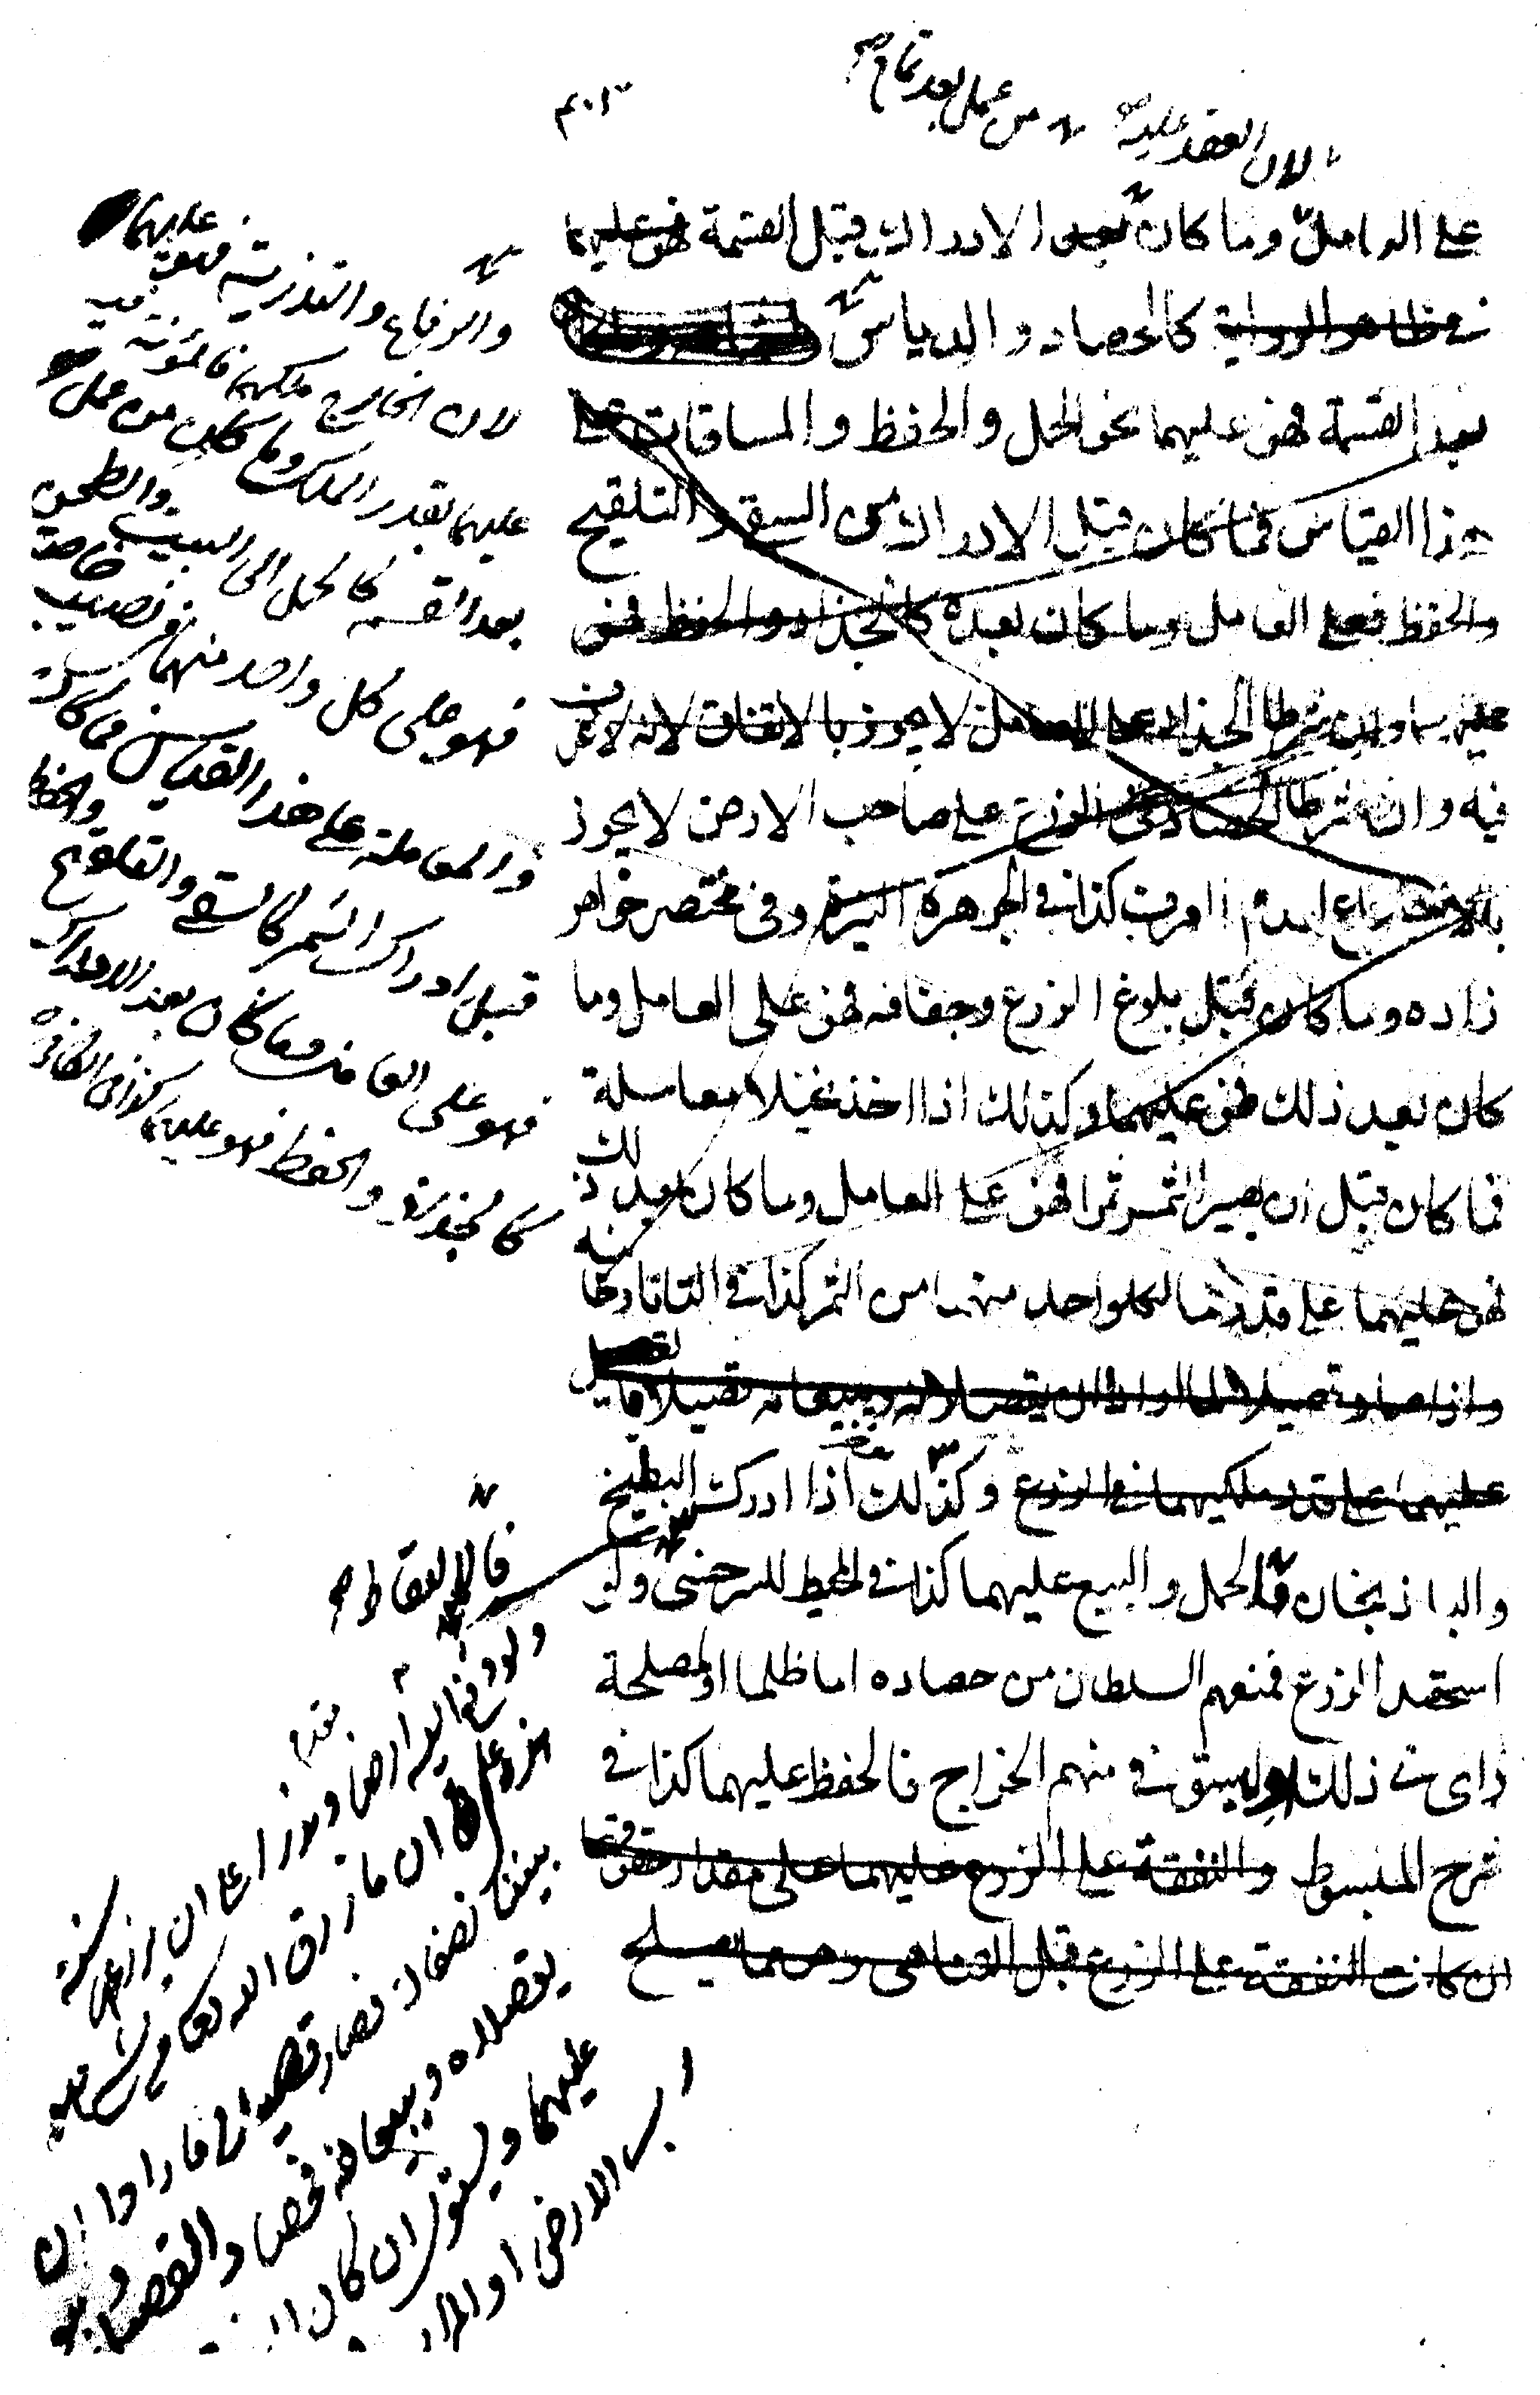 ٣٠١م
لان العقد عليه من عمل بعد تمام
على العامل وما كان بعد الادراك قبل القسمة فهو عليهما
في ظاهر الرواية كالحصاد والدياس
بعد القسمة فهو عليهما نحو الحمل والحفظ والمساقات على
هذا القياس فما كان قبل الادراك من السقي والتلقيح
والحفظ فعلى العامل وما كان بعده كالجذاذ والحفظ فهو
عليهما وان شرطا الجذاذ على العامل لا يجوز بالاتفاق لانه لا عرف
فيه وان شرطا الحصاد في الزرع على صاحب الارض لا يجوز
بالاجماع لعدم العرف كذا في الجوهرة النيرة وفي مختصر خواهر
زاده وما كان قبل بلوغ الزرع وجفافه فهو على العامل وما
كان بعد ذلك فهو عليهما وكذلك اذا اخذ نخيلا معاملة
فما كان قبل ان يصير الثمر تمرا فهو على العامل وما كان بعد ذلك
فهو عليهما على قدر ما لكل واحد منهما من الثمر كذا في التاتارخانيه
عليهما على قدر ملكيهما في الزرع وكذلك اذا ادركت البطيخ
والباذنجان الحمل والبيع عليهما كذا في المحيط للسرخسي ولو
استحصد الزرع فمنعهم السلطان من حصاده اما ظلما او لمصلحة
راى في ذلك او ليستوفي منهم الخراج فالحفظ عليهما كذا في
شرح المبسوط والنفقة على الزرع عليهما على مقدار حقوقهما
ان كانت النفقة على الزرع قبل
والرفاع والتذرية فهو عليهما
لان الخارج ملكهما فالمؤنة فيه
عليهما بقدر الملك وما كان من عمل
بعد القسمة كالحمل الى البيت والطحن
فهو على كل واحد منهما في نصيبه خاصة
والمعاملة على هذا القياس فما كان
قبل ادراك الثمر كالسقي والتلقيح والحفظ
فهو على العامل وما كان بعد الادراك
كالجذاذ والحفظ فهو عليهما كذا في الكافي
فالالتقاط
ولو دفع اليه ارضا وبذرا على ان يزرعها سنته
هذه على ان ما رزق الله تعالى من شئ فهو
بيننا نصفان فصار قصيلا فارادا ان
يقصلاه ويبيعانه فحصاد القصيل وبيعه
عليهما ويستوى ان كان
رب الارض او